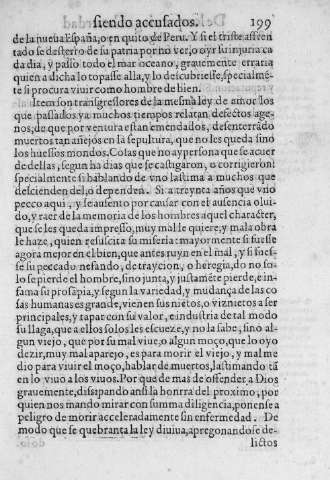 siendo accusados. 199
de la nueua España, o en quito de Peru. Y si el triste assren
tado se desterro de su patria por no ver, o oyr su injuria ca
da dia, y passo todo el mar oceano, grauemente erraria
quien a dicha lo topasse alla, y lo descubriesse, specialmē-
te si procura viuir como hombre de bien.
Item son transgressores de la mesma ley de amor los
que passados ya muchos tiempos relatan defectos age-
nos, de que por ventura estan emendados, desenterrādo
muertos tan añejos en la sepultura, que no les queda sino
los huessos mondos. Cosas que no ay persona que se acuer
de dellas, segun ha dias que se castigaron, o corrigeron:
specialmente si hablando de vno lastima a muchos que
descienden del, o dependen. Si a treynta años que vno
pecco aqui, y se ausento por causar con el ausencia olui-
do, y raer de la memoria de los hombres aquel character,
que se les queda impresso, muy mal le quiere, y mala obra
le haze, quien resuscita su miseria: mayormente si fuesse
agora mejor en el bien, que antes ruyn en el mal, y si fues-
se su peccado nefando, de traycion, o heregia, do no so-
lo se pierde el hombre, sino junta, y justamēte pierde, e in-
fama su prosapia, y segun la variedad, y mudança de las co
sas humanas es grande, vienen sus nietos, o viznietos a ser
principales, y tapar con su valor, e industria de tal modo
su llaga, que a ellos solos les escueze, y no la sabe, sino al-
gun viejo, que por su mal viue, o algun moço, que lo oyo
dezir, muy mal aparejo, es para morir el viejo, y mal me
dio para viuir el moço, hablar de muertos, lastimando tā
en lo viuo a los viuos. Por que de mas de offender a Dios
grauemente, dissipando ansi la honrra del proximo, por
quien nos mando mirar con summa diligencia, ponense a
peligro de morir acceleradamente sin enfermedad. De
modo que se quebranta la ley diuiua, apregonando se de-
lictos